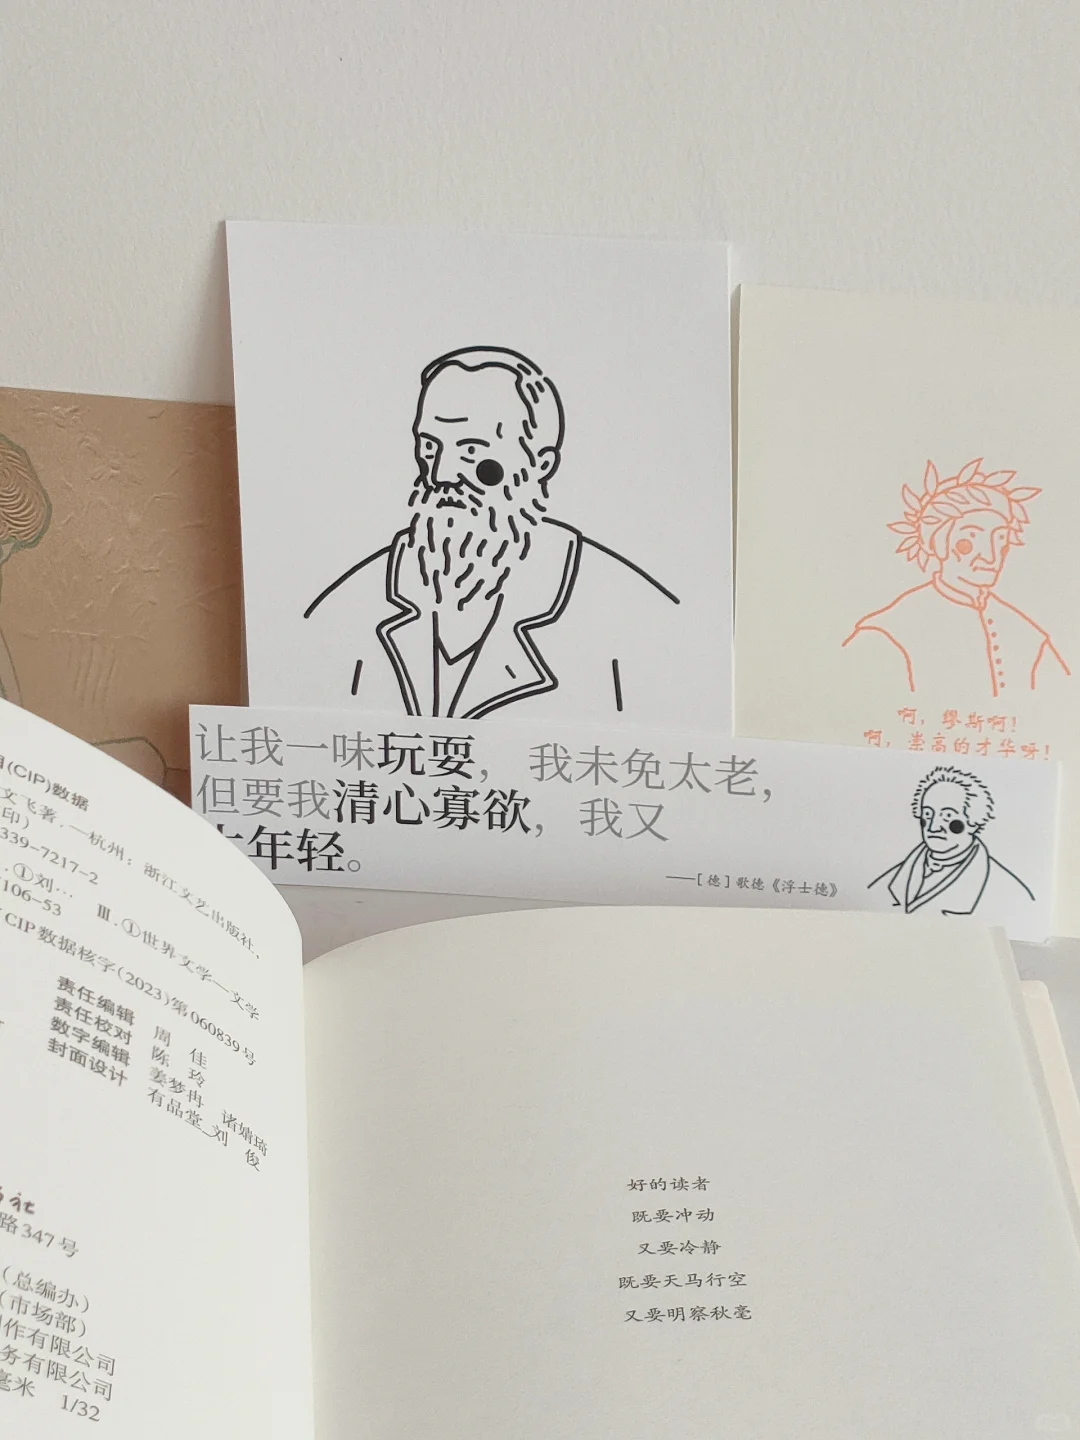 啊，缪斯啊！
啊，崇高的才华呀！
让我一味玩耍，我未免太老，
但要我清心寡欲，我又
年轻。
——[德]歌德《浮士德》
(CIP)数据
文飞著.—杭州：浙江文艺出版社，
印）
339-7217-2
①刘… Ⅲ.①世界文学—文学
106-53
CIP数据核字(2023)第060839号
责任编辑 周 佳
责任校对 陈 玲
数字编辑 姜梦冉 诸婧琦
封面设计 有品堂_刘 俊
社
路347号
（总编办）
（市场部）
作有限公司
务有限公司
毫米 1/32
好的读者
既要冲动
又要冷静
既要天马行空
又要明察秋毫